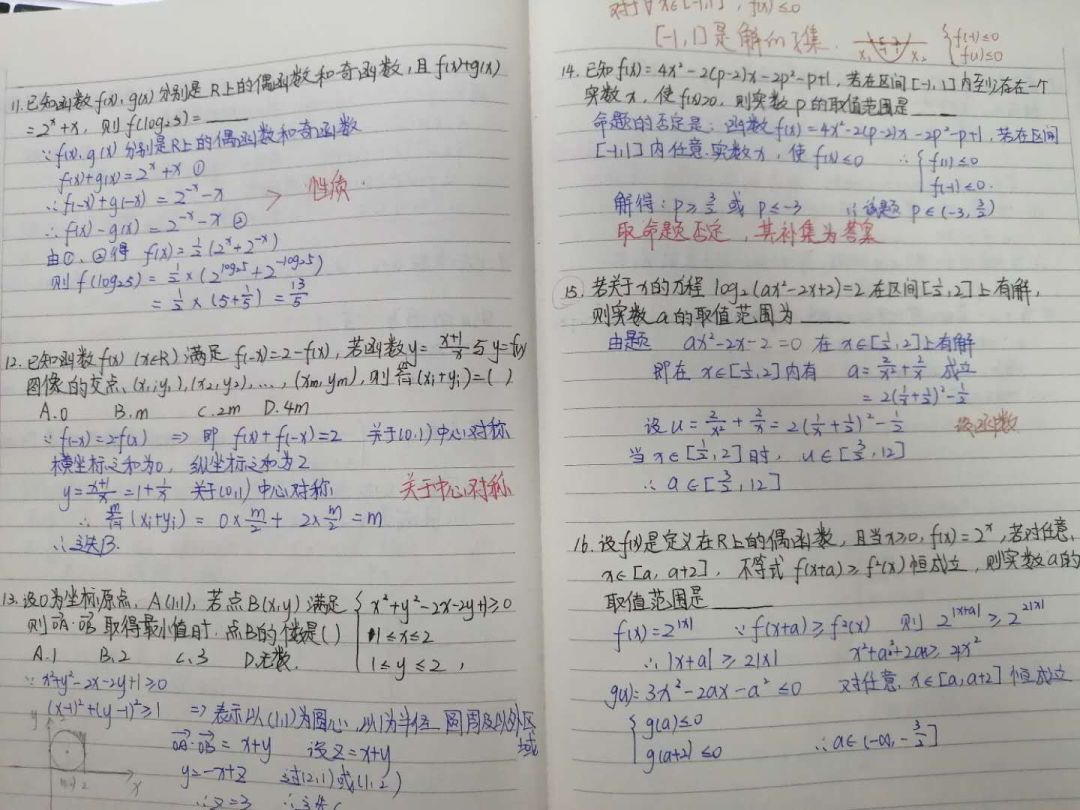 11. 已知函数f(x), g(x) 分别是R上的偶函数和奇函数, 且f(x)+g(x)
= 2ˣ+x, 则 f(log₂5) = ____
∵ f(x), g(x) 分别是R上的偶函数和奇函数
f(x)+g(x)=2ˣ+x ①
∴ f(-x)+g(-x) = 2⁻ˣ-x
> 性质.
∴ f(x)-g(x) = 2⁻ˣ-x ②
由①、②得 f(x)= 1/2 (2ˣ+2⁻ˣ)
则 f(log₂5) = 1/2 × (2^(log₂5)+2^(-log₂5))
= 1/2 × (5+1/5) = 13/5
12. 已知函数f(x) (x∈R) 满足 f(-x)=2-f(x), 若函数y= (x+1)/x 与 y=f(x)
图像的交点(x₁,y₁),(x₂,y₂),…,(xm,ym), 则 Σ(xᵢ+yᵢ)=( )
A.0 B.m C.2m D.4m
∵ f(-x)=2-f(x) ⇒ 即 f(x)+f(-x)=2 关于(0,1)中心对称
横坐标之和为0, 纵坐标之和为2
y= (x+1)/x =1+1/x 关于(0,1)中心对称
关于中心对称
∴ Σ(xᵢ+yᵢ) = 0×m/2 + 2×m/2 =m
∴选B.
13. 设O为坐标原点, A(1,1), 若点B(x,y)满足 { x²+y²-2x-2y+1≥0
1≤x≤2
1≤y≤2,
则 OA·OB 取得最小值时, 点B的个数是( )
A.1 B.2 C.3 D.无数.
∵ x²+y²-2x-2y+1≥0
(x-1)²+(y-1)²≥1 ⇒ 表示以(1,1)为圆心, 以1为半径 圆周及以外区域
OA·OB = x+y 设z=x+y
y=-x+z 过(2,1)或(1,2)
∴z=3
y
x
对于∀x∈[-1,1], f(x)≤0
[-1,1]是解的子集.
x₁ x₂
{ f(-1)≤0
f(1)≤0
14. 已知f(x)=4x²-2(p-2)x-2p²-p+1, 若在区间[-1,1]内至少存在一个
实数x, 使f(x)>0, 则实数p的取值范围是____
命题的否定是: 函数f(x)=4x²-2(p-2)x-2p²-p+1, 若在区间
[-1,1]内任意实数x, 使f(x)≤0 ∴ { f(1)≤0
f(-1)≤0.
解得: p≥3/2 或 p≤-3 p∈(-3, 3/2)
取命题否定, 其补集为答案
15. 若关于x的方程 log₂(ax²-2x+2)=2 在区间[1/2,2]上有解,
则实数a的取值范围为____
由题 ax²-2x-2=0 在x∈[1/2,2]上有解
即在x∈[1/2,2]内有 a= 2/x²+2/x 成立
= 2(1/x+1/2)²-1/2
设u= 2/x² + 2/x = 2(1/x+1/2)²-1/2
设函数
当x∈[1/2,2]时, u∈[3/2,12]
∴ a∈[3/2,12]
16. 设f(x)是定义在R上的偶函数, 且当x≥0, f(x)=2ˣ, 若对任意
x∈[a,a+2], 不等式f(x+a)≥f²(x)恒成立, 则实数a的
取值范围是____
f(x)=2^|x| ∵ f(x+a)≥f²(x) 则 2^|x+a| ≥ 2^(2|x|)
∴ |x+a|≥2|x| x²+a²+2ax≥4x²
g(x)=3x²-2ax-a²≤0 对任意x∈[a,a+2]恒成立
{ g(a)≤0
g(a+2)≤0
∴a∈(-∞,-3/2]